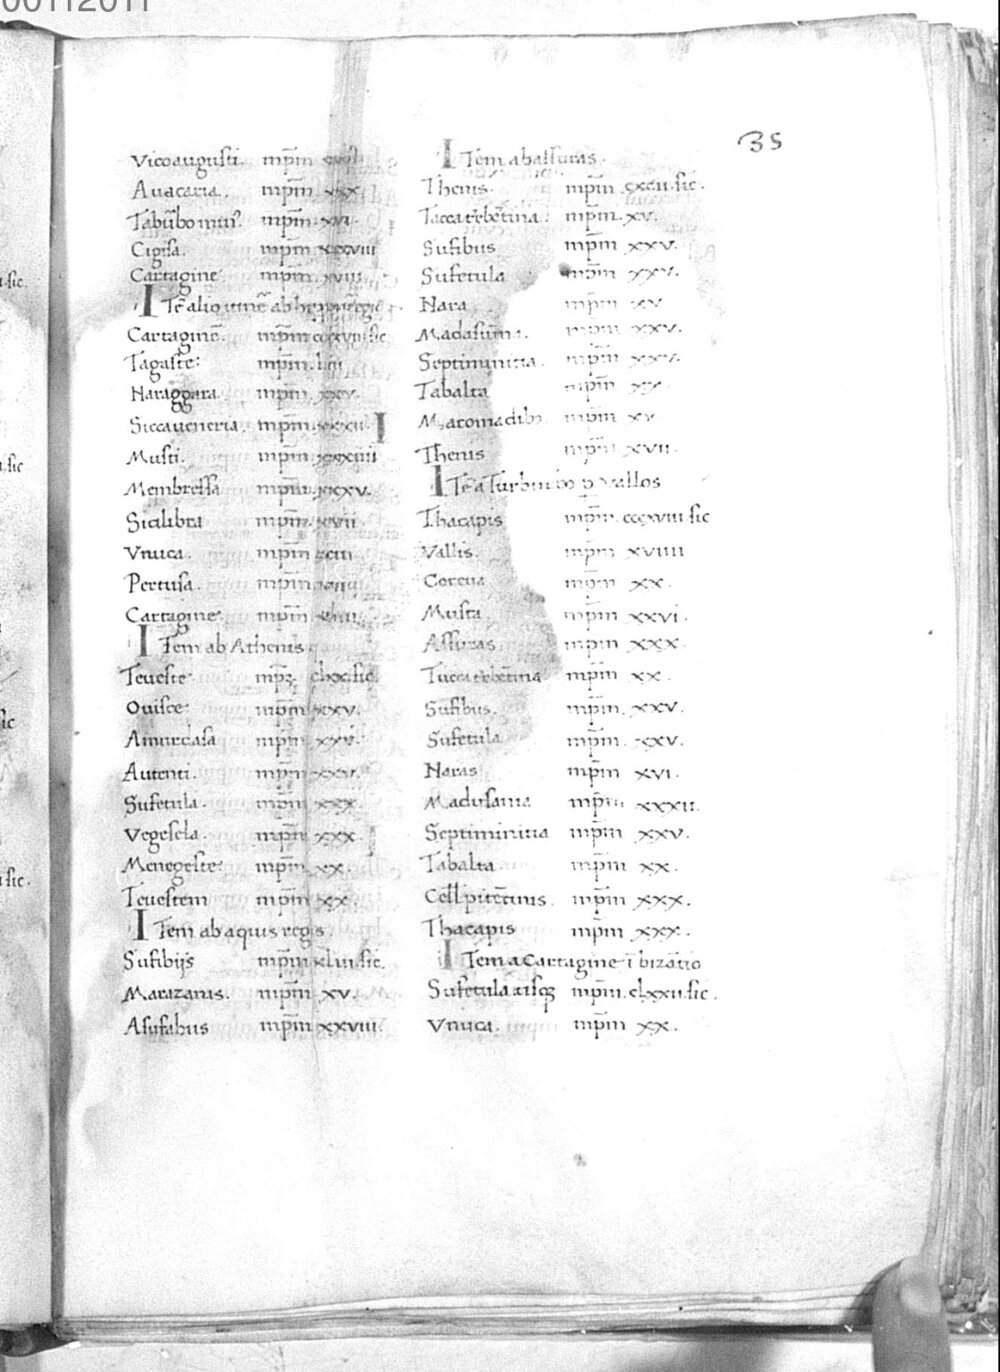 35
Vicoaugusti. mpm
Auacaria. mpm xxx
Tabūbo mīn. mpm. xvi.
Cigisa. mpm xxxviii
Cartagine mpm. xviii.
Itē alio itinē ab
Cartaginē. mpm sic
Tagaste: mpm. liii
Naraggara. mpm. xxv.
Siccaueneria. mpm. xxxii.
Musti. mpm. xxxiiii
Membressa mpm. xxxv.
Sicilibra mpm. xvii
Vnuca. mpm xiii
Pertusa. mpm
Cartagine mpm
Item ab Athenis
Teueste mpꝫ clxx. sic
Ouisce mpm xxv.
Amurdasa mpm xxv.
Autenti. mpm xxv.
Sufetula. mpm xxx.
Vegesela. mpm xxx.
Menegeste mpm xx.
Teuestem mpm xx.
Item ab aquis regis
Sufibijs mpm xliii. sic.
Marazanis. mpm xv.
Asufabus mpm xxviii.
Item abassuras.
Thenis. mpm. cxcii. sic.
Tuccaterebētina: mpm. xv.
Sufibus mpm xxv.
Sufetula mpm xxv.
Nara mpm xv
Madasūma. mpm xxv.
Septiminicia. mpm xxv.
Tabalta mpm xx.
Macomadibꝫ mpm xv
Thenis mpm xvii.
Itē a Turbin p vallos
Thacapis mpm. cccxviii. sic
Vallis. mpm xviiii
Coreua mpm xx.
Musta mpm xxvi.
Assuras mpm xxx.
Tuccaterebētina mpm xx.
Sufibus. mpm. xxv.
Sufetula mpm. xxv.
Naras mpm xvi.
Madusama mpm xxxii.
Septiminicia mpm xxv.
Tabalta. mpm xx.
Cellpitētinis. mpm xxx.
Thacapis mpm xxx.
Item a Cartagine ī bizātio
Sufetula usqꝫ mpm. clxxii. sic.
Vnuca. mpm xx.